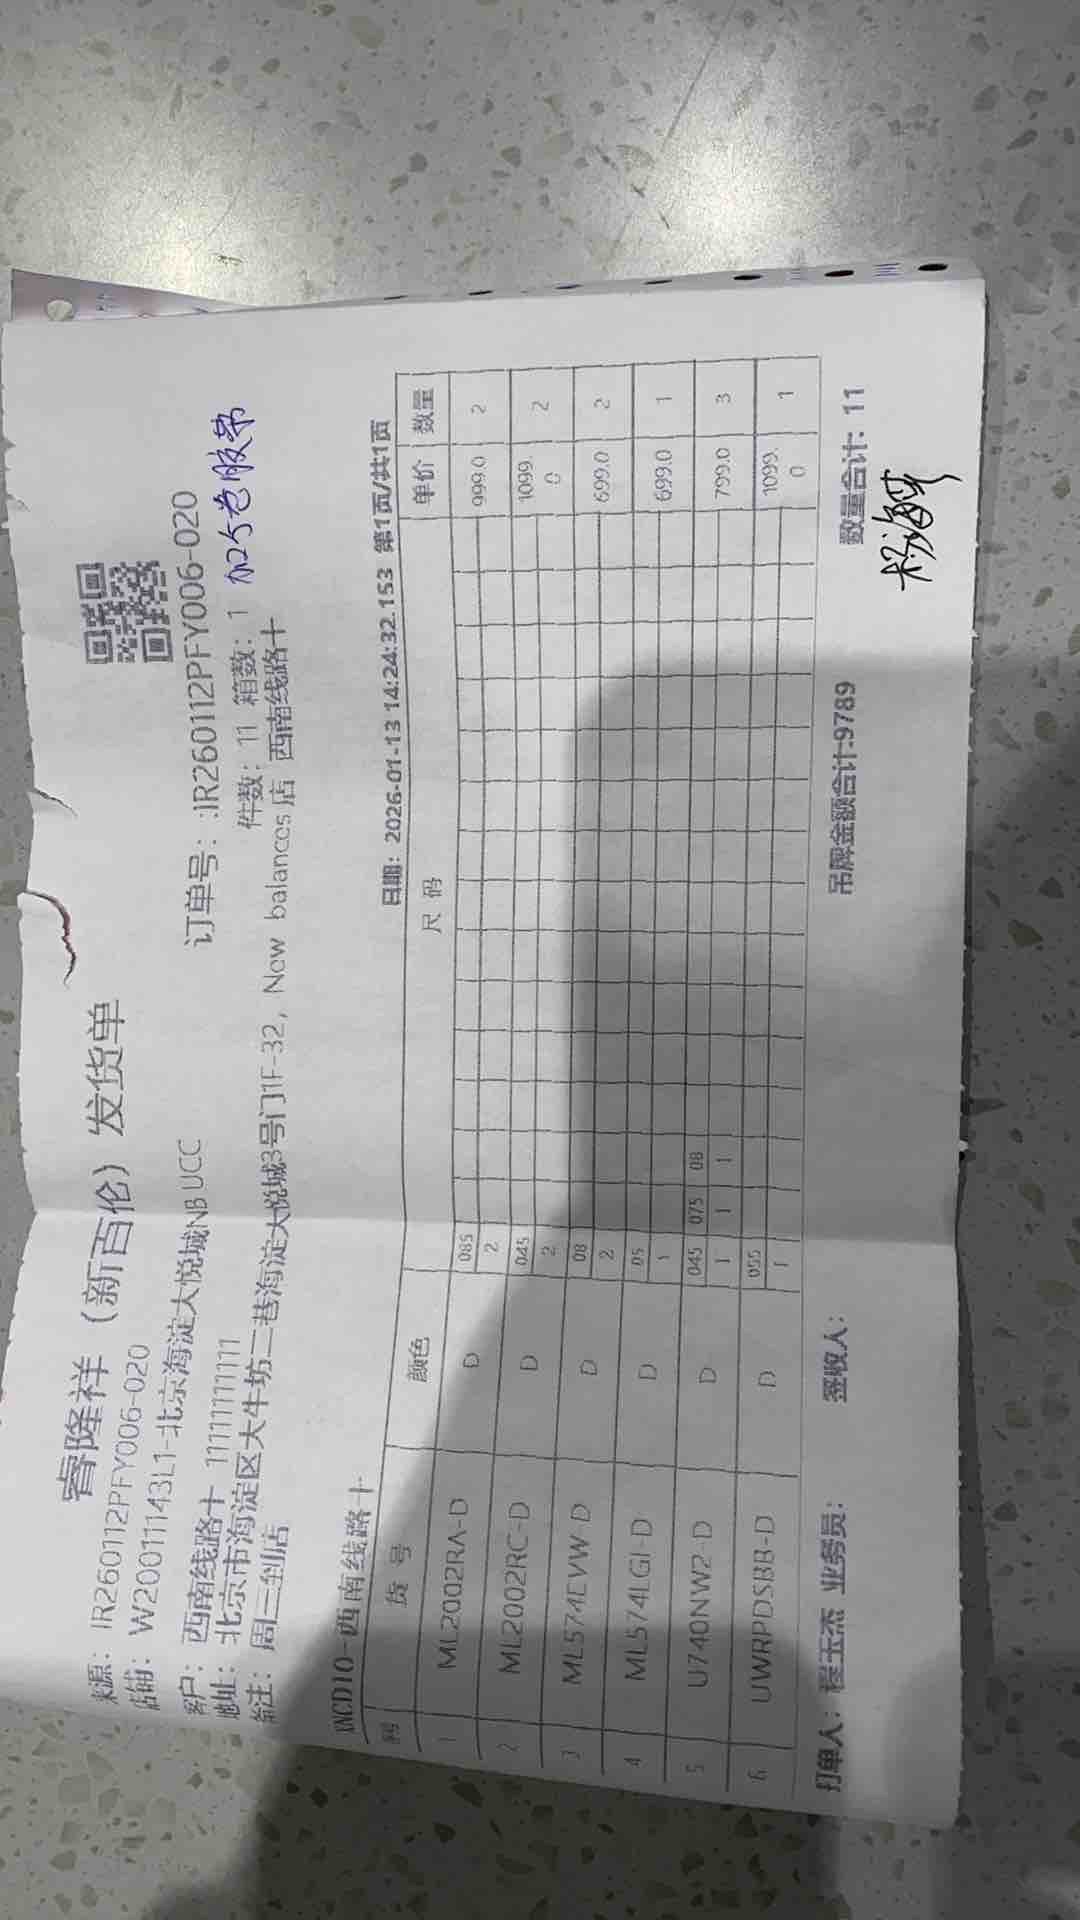 睿隆祥（新百伦）发货单
来源：IR260112PFY006-020
订单号：:IR260112PFY006-020
店铺：W20011143L1-北京海淀大悦城NB UCC
件数：11 箱数：1 加5卷胶带
客户：西南线路十 11111111111
地址：北京市海淀区大牛坊二巷海淀大悦城3号门1F-32，New balances店 西南线路十
备注：周三到店
日期：2026-01-13 14:24:32.153 第1页/共1页
-西南线路十
货号 颜色 尺码 单价 数量
1 ML2002RA-D D 085 999.0 2
2
2 ML2002RC-D D 045 1099.0 2
2
3 ML574EVW-D D 08 699.0 2
2
4 ML574LGI-D D 05 699.0 1
1
5 U740NW2-D D 045 075 08 799.0 3
1 1 1
6 UWRPDSBB-D D 055 1099.0 1
1
打单人：程玉杰 业务员： 签收人： 吊牌金额合计:9789 数量合计：11